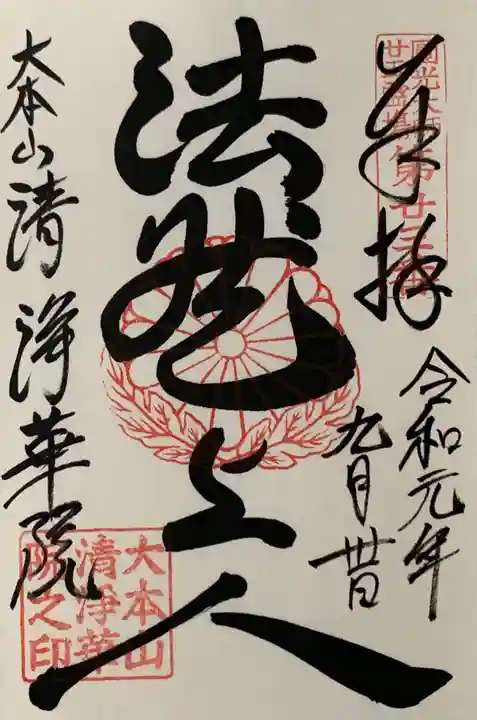 奉拝
圓光大師
廿五霊場
第廿三番
令和元年
九月丗日
法然上人
大本山清浄華院
大本山
清浄華
院之印